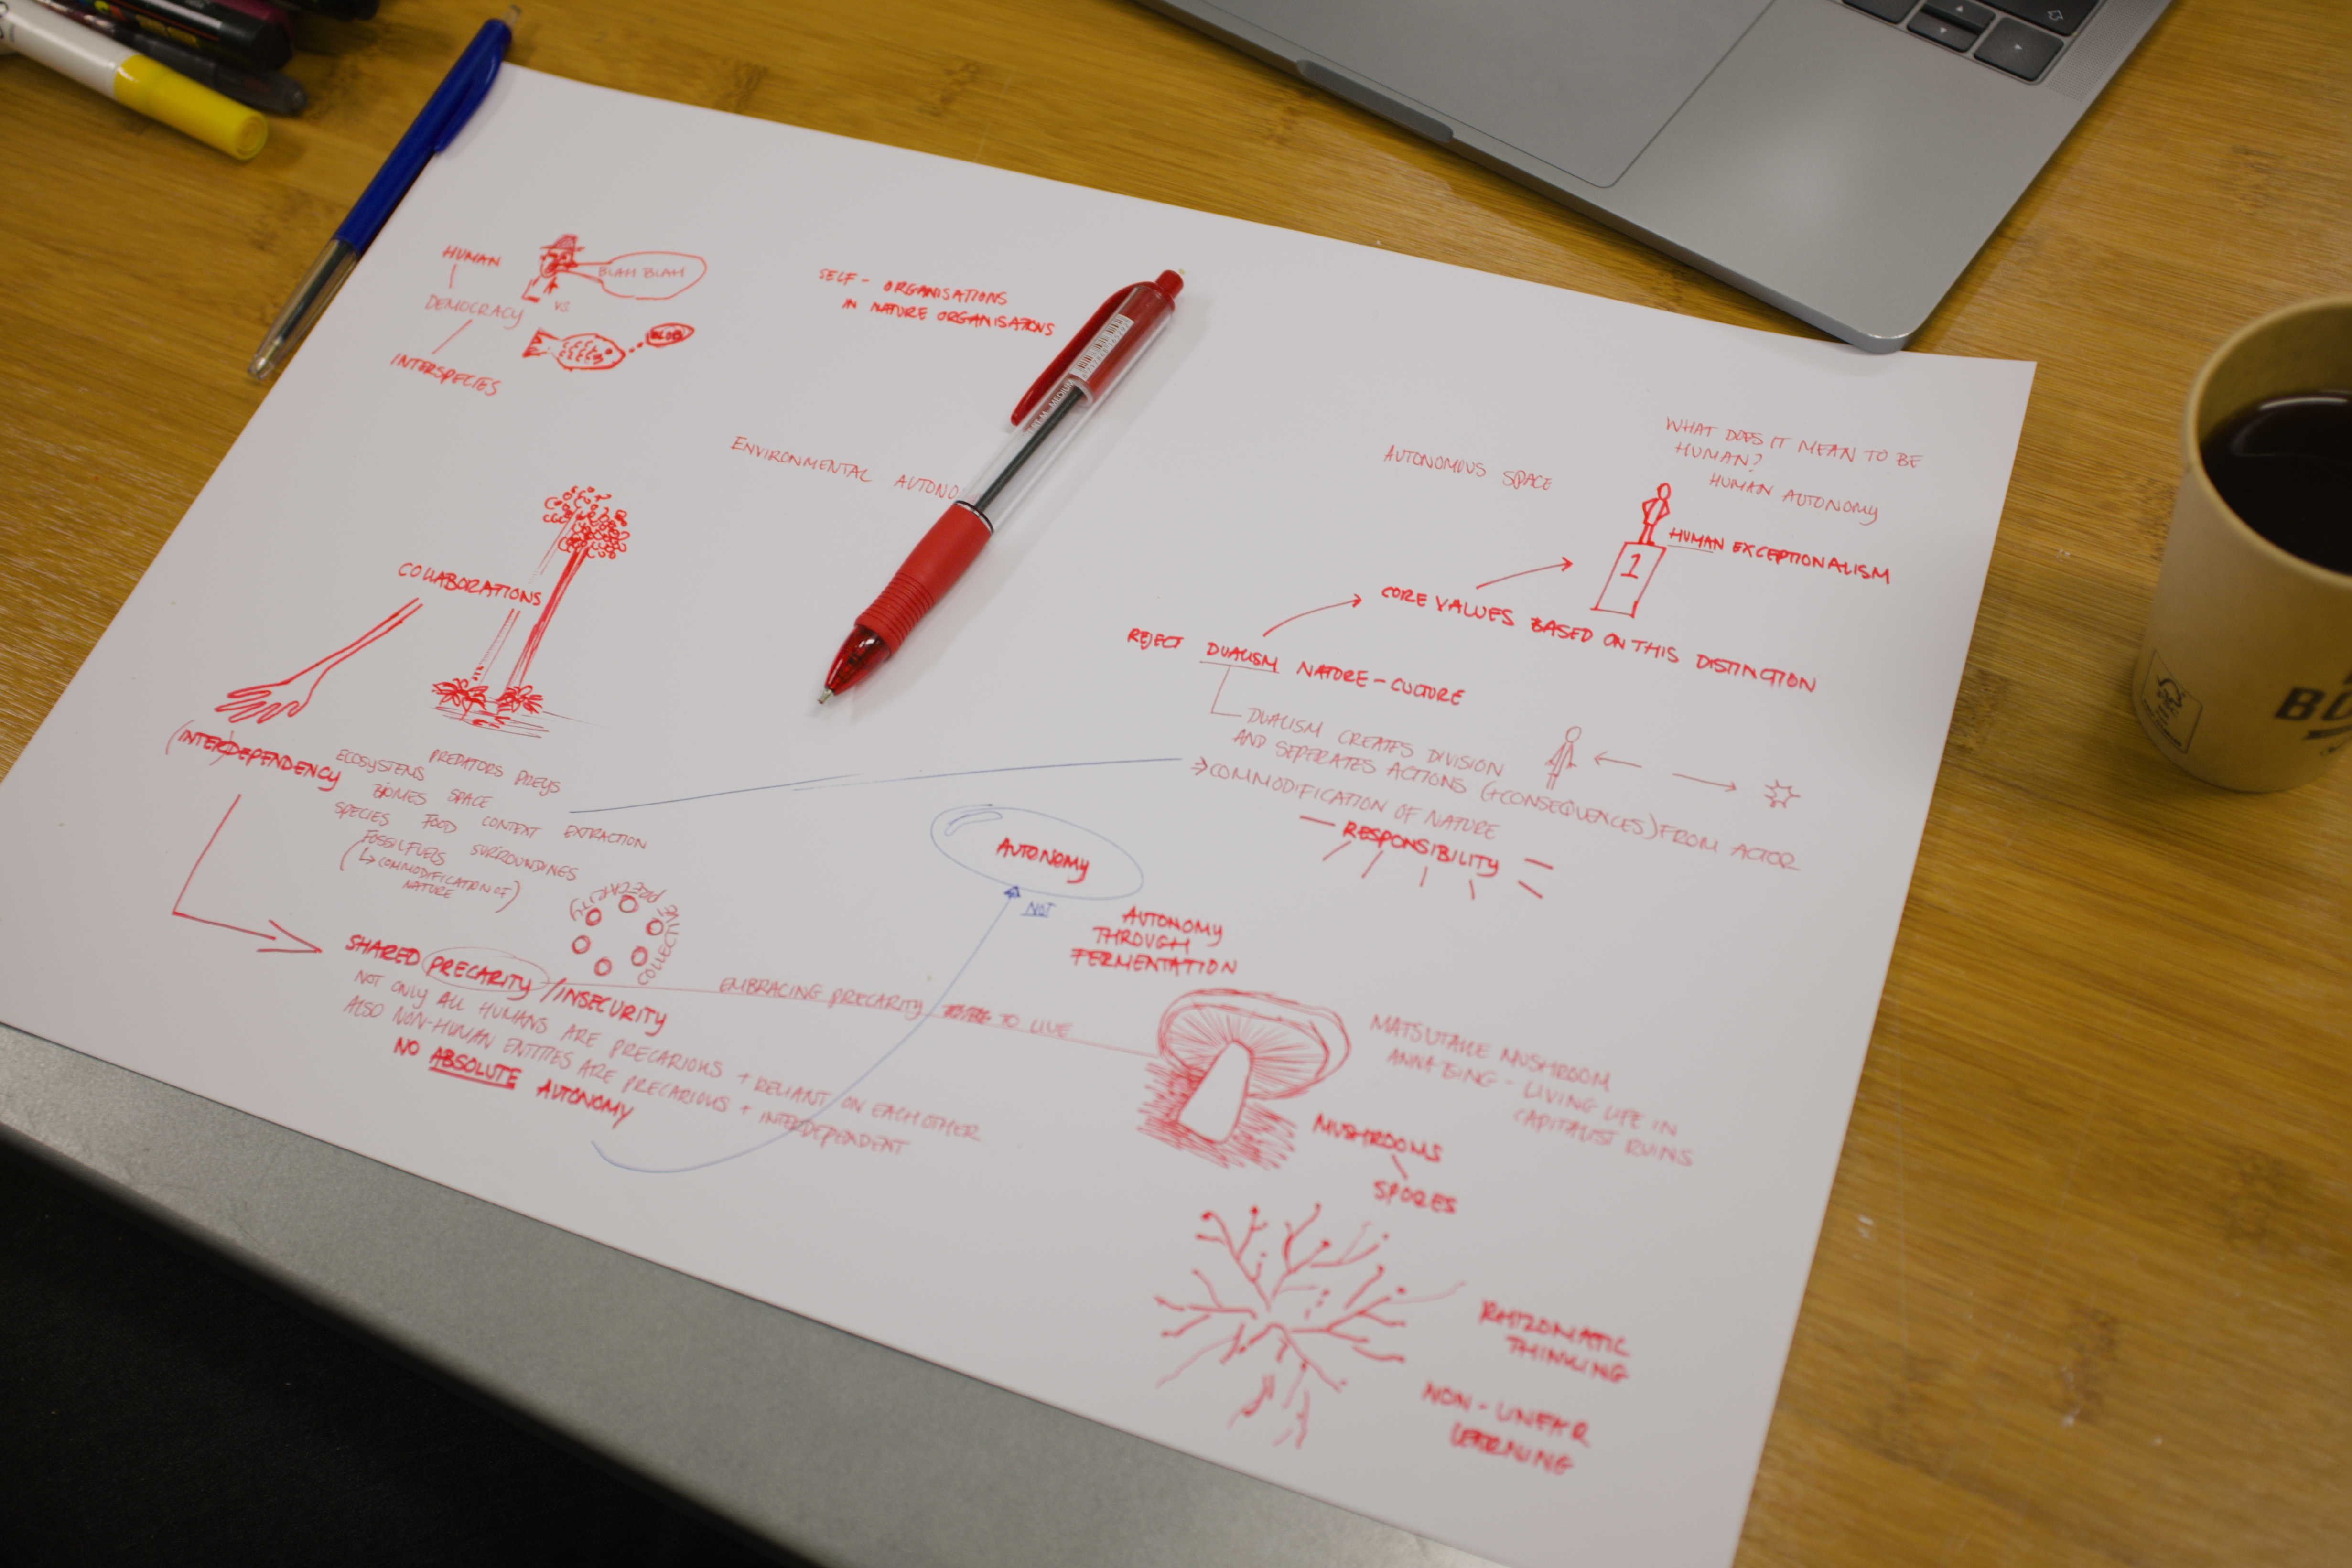 HUMAN
DEMOCRACY
INTERSPECIES
BLAH BLAH
VS
BLUB
SELF - ORGANISATIONS
IN NATURE ORGANISATIONS
ENVIRONMENTAL AUTONO
AUTONOMOUS SPACE
WHAT DOES IT MEAN TO BE
HUMAN?
HUMAN AUTONOMY
1
HUMAN EXCEPTIONALISM
CORE VALUES BASED ON THIS DISTINCTION
REJECT DUALISM NATURE - CULTURE
DUALISM CREATES DIVISION
AND SEPERATES ACTIONS (+CONSEQUENCES) FROM ACTOR
→ COMMODIFICATION OF NATURE
RESPONSIBILITY
COLLABORATIONS
(INTER)DEPENDENCY
ECOSYSTEMS PREDATORS PREYS
BIOMES SPACE
SPECIES FOOD CONTEXT EXTRACTION
FOSSIL FUELS SURROUNDINGS
(↳ COMMODIFICATION OF
NATURE)
AUTONOMY
NOT
COLLECTIVE PRECARITY
SHARED PRECARITY / INSECURITY
NOT ONLY ALL HUMANS ARE PRECARIOUS + RELIANT ON EACH OTHER
ALSO NON-HUMAN ENTITIES ARE PRECARIOUS + INTERDEPENDENT
NO ABSOLUTE AUTONOMY
EMBRACING PRECARITY TO LIVE
AUTONOMY
THROUGH
FERMENTATION
MATSUTAKE MUSHROOM
ANNA TSING - LIVING LIFE IN
CAPITALIST RUINS
MUSHROOMS
SPORES
RHIZOMATIC
THINKING
NON - LINEAR
LEARNING